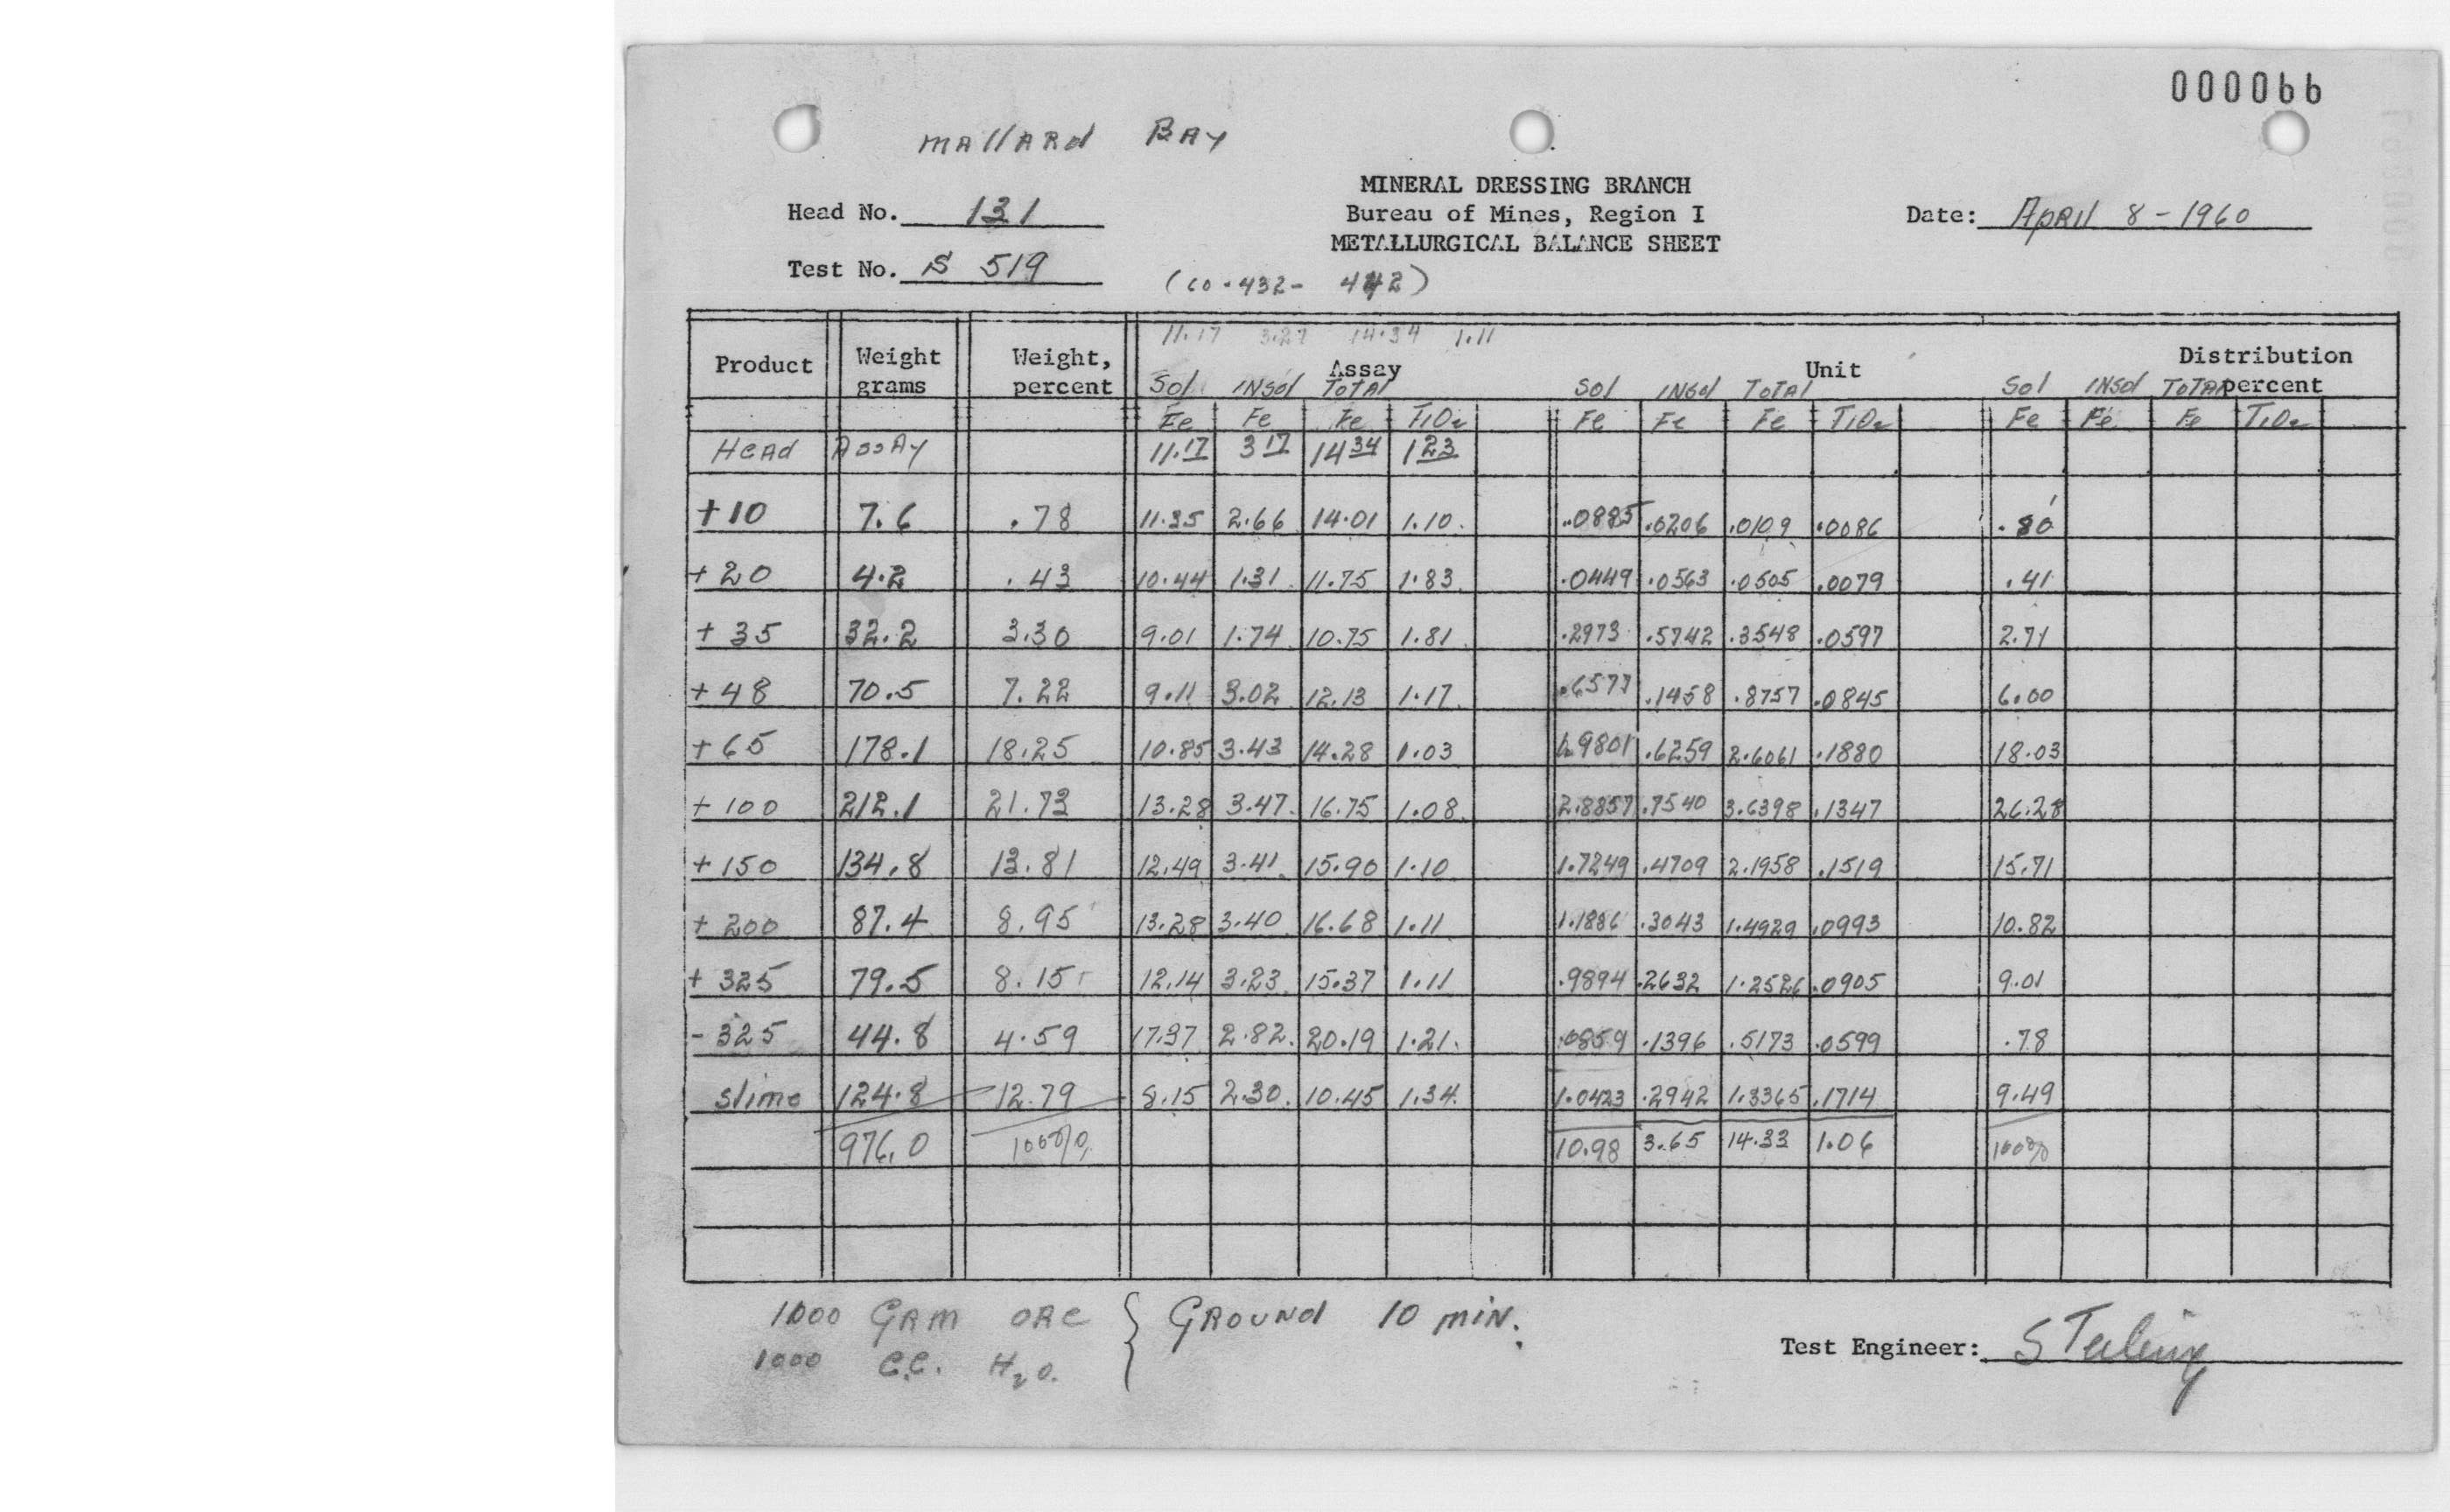 000066
MAllARd BAY
MINERAL DRESSING BRANCH
Head No. 131
Bureau of Mines, Region I
Date: APRIl 8-1960
METALLURGICAL BALANCE SHEET
Test No. S 519
(60-432- 442)
11.17 3.27 14.34 1.11
Product Weight grams Weight, percent Assay Unit Distribution percent
Sol INSol TOTAL Sol INSol TOTAl Sol INSol TOTAL
Fe Fe Fe TiO2 Fe Fe Fe TiO2 Fe Fe Fe TiO2
HeAd ASSAY 11.17 3 17 14 34 1 23
+10 7.6 .78 11.35 2.66 14.01 1.10 .0885 .0206 .0109 .0086 .80
+20 4.2 .43 10.44 1.31 11.75 1.83 .0449 .0563 .0505 .0079 .41
+35 32.2 3.30 9.01 1.74 10.75 1.81 .2973 .5742 .3548 .0597 2.71
+48 70.5 7.22 9.11 3.02 12.13 1.17 .6577 .1458 .8757 .0845 6.00
+65 178.1 18.25 10.85 3.43 14.28 1.03 1.9801 .6259 2.6061 .1880 18.03
+100 212.1 21.73 13.28 3.47 16.75 1.08 2.8857 .7540 3.6398 .1347 26.28
+150 134.8 13.81 12.49 3.41 15.90 1.10 1.7249 .4709 2.1958 .1519 15.71
+200 87.4 8.95 13.28 3.40 16.68 1.11 1.1886 .3043 1.4929 .0993 10.82
+325 79.5 8.15 12.14 3.23 15.37 1.11 .9894 .2632 1.2526 .0905 9.01
-325 44.8 4.59 17.37 2.82 20.19 1.21 .0859 .1396 .5173 .0599 .78
Slime 124.8 12.79 8.15 2.30 10.45 1.34 1.0423 .2942 1.3365 .1714 9.49
976.0 100% 10.98 3.65 14.33 1.06 100%
1000 GRAM ORE } GROUNd 10 MIN.
1000 C.C. H2O.
Test Engineer: